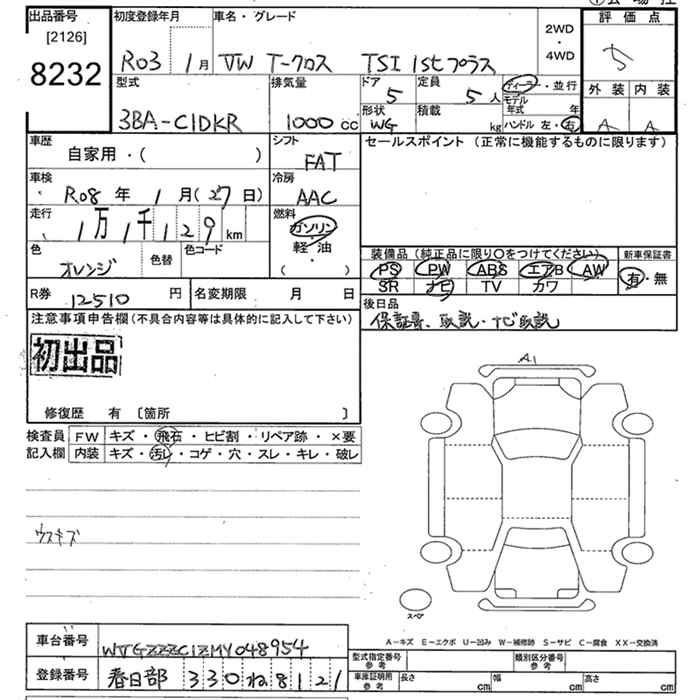 出品番号 初度登録年月 車名・グレード 2WD ・ 4WD 評価点
[2126] 8232 R03 1月 VW T-クロス TSI 1stプラス 5
型式 排気量 ドア 5 定員 5人 ディーラー・並行 外装 内装
3BA-C1DKR 1000cc 形状 WG 積載 kg モデル年式 年 ハンドル 左・右 A A
車歴 自家用・( ) シフト FAT セールスポイント (正常に機能するものに限ります)
車検 R08年 1月(27日) 冷房 AAC
走行 1万1千129km 燃料 ガソリン 軽油 ・ ( )
色 オレンジ 色替 色コード 装備品 (純正品に限り○をつけてください) 新車保証書
PS PW ABS エアB AW 有・無
SR ナビ TV カワ
R券 12510円 名変期限 月 日 後日品
注意事項申告欄(不具合内容等は具体的に記入して下さい) 保証書、取説・ナビ取説
初出品
A1
修復歴 有 〔箇所 〕
検査員 FW キズ・飛石・ヒビ割・リペア跡・×要
記入欄 内装 キズ・汚レ・コゲ・穴・スレ・キレ・破レ
ウスキズ
スペア
A-キズ E-エクボ U-凹み W-補修跡 S-サビ C-腐食 XX-交換済
車台番号 WVGZZZC1ZMY048954 型式指定番号 参考 類別区分番号 参考
登録番号 春日部 330 ね 8121 車庫証明用 参考 長さ cm 幅 cm 高さ cm